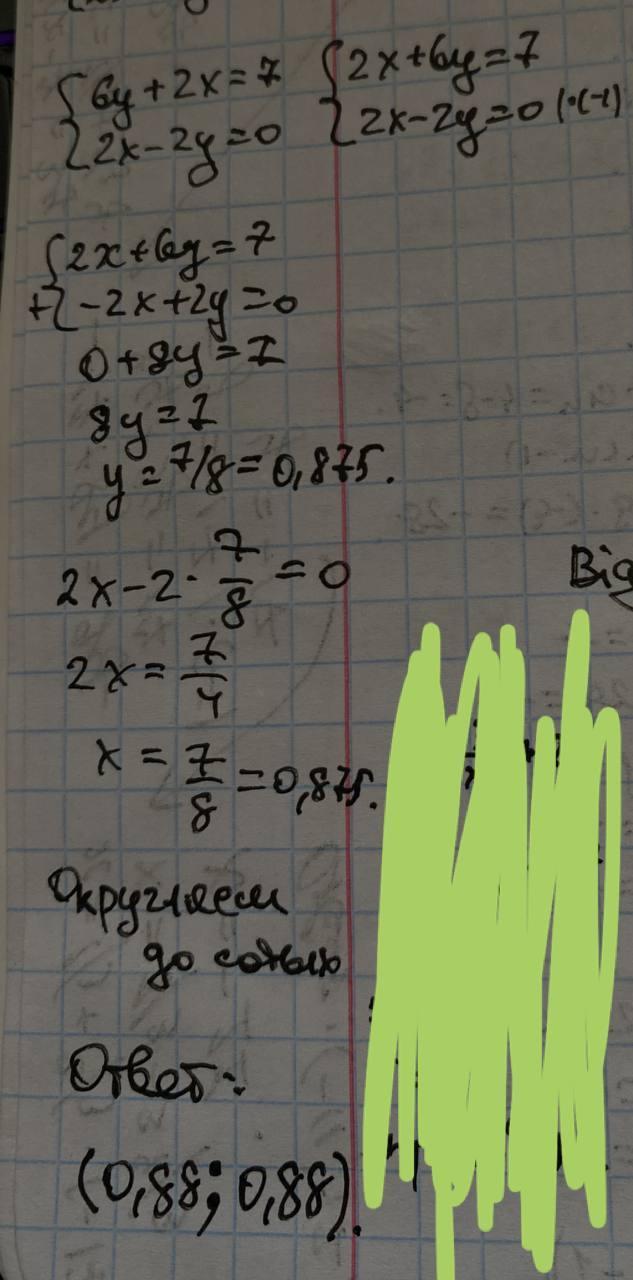 {6y+2x=7 {2x+6y=7
{2x-2y=0 {2x-2y=0 |·(-1)
{2x+6y=7
+{-2x+2y=0
0+8y=7
8y=7
y=7/8=0,875.
2x-2·7/8=0
Big
2x=7/4
x=7/8=0,875.
Округляем
до сотых
Ответ:
(0,88; 0,88).